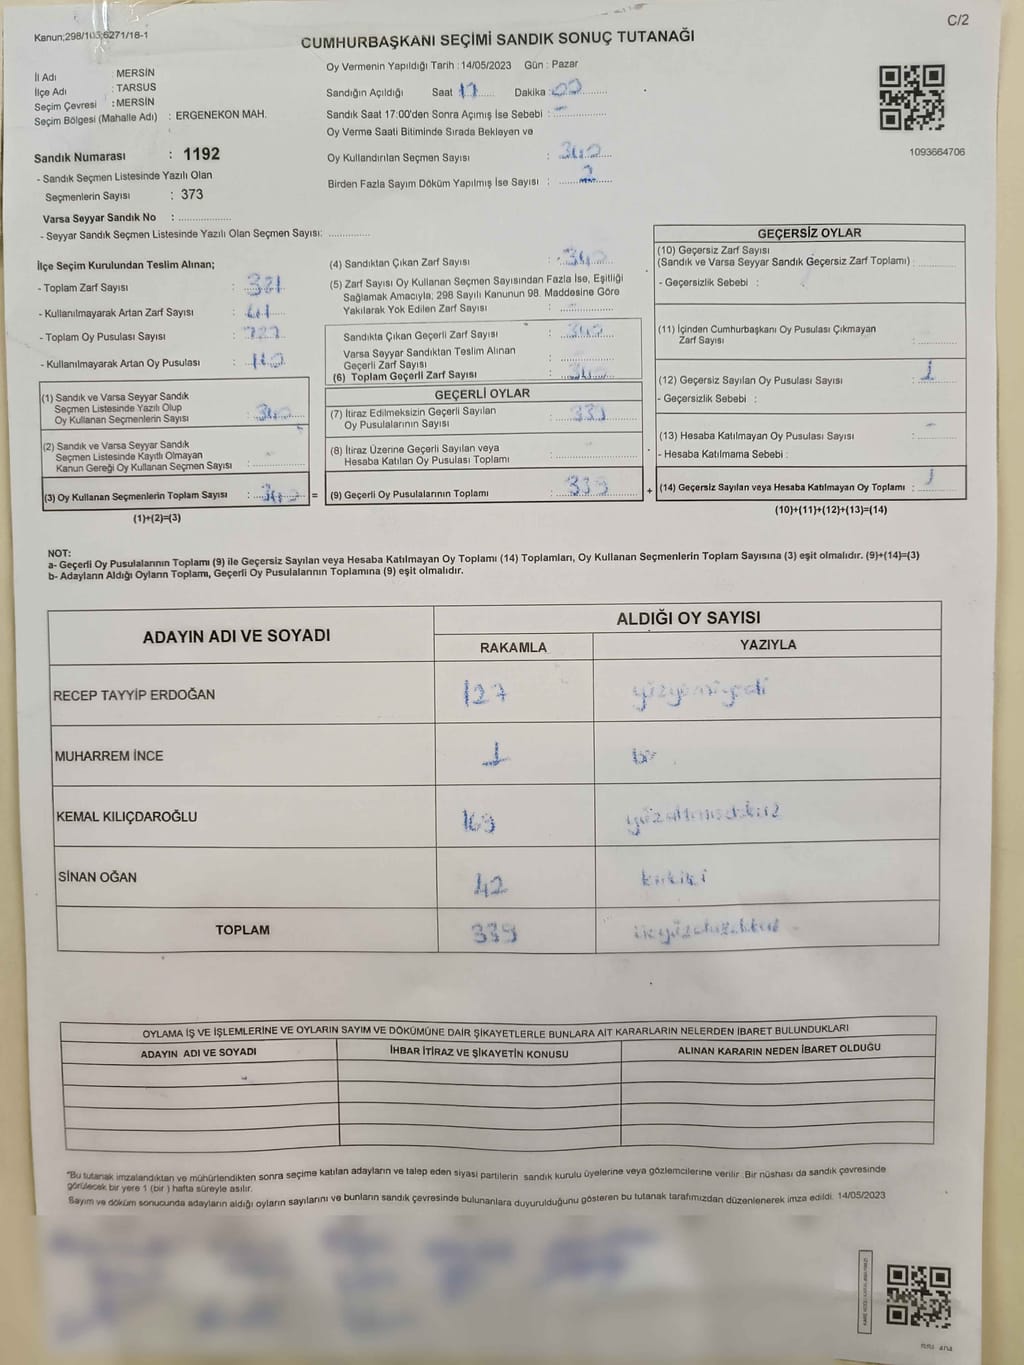 C/2
Kanun;298/105;6271/18-1
CUMHURBAŞKANI SEÇİMİ SANDIK SONUÇ TUTANAĞI
İl Adı : MERSİN
İlçe Adı : TARSUS
Seçim Çevresi : MERSİN
Seçim Bölgesi (Mahalle Adı) : ERGENEKON MAH.
Sandık Numarası : 1192
- Sandık Seçmen Listesinde Yazılı Olan
Seçmenlerin Sayısı : 373
Varsa Seyyar Sandık No :
- Seyyar Sandık Seçmen Listesinde Yazılı Olan Seçmen Sayısı:
Oy Vermenin Yapıldığı Tarih : 14/05/2023 Gün : Pazar
Sandığın Açıldığı Saat 17 Dakika : 00
Sandık Saat 17:00'den Sonra Açımış İse Sebebi : -
Oy Verme Saati Bitiminde Sırada Bekleyen ve
Oy Kullandırılan Seçmen Sayısı : 340
Birden Fazla Sayım Döküm Yapılmış İse Sayısı :
1093664706
İlçe Seçim Kurulundan Teslim Alınan;
- Toplam Zarf Sayısı :
- Kullanılmayarak Artan Zarf Sayısı :
- Toplam Oy Pusulası Sayısı :
- Kullanılmayarak Artan Oy Pusulası :
(1) Sandık ve Varsa Seyyar Sandık
Seçmen Listesinde Yazılı Olup
Oy Kullanan Seçmenlerin Sayısı : 340
(2) Sandık ve Varsa Seyyar Sandık
Seçmen Listesinde Kayıtlı Olmayan
Kanun Gereği Oy Kullanan Seçmen Sayısı :
(3) Oy Kullanan Seçmenlerin Toplam Sayısı : 340 =
(1)+(2)=(3)
(4) Sandıktan Çıkan Zarf Sayısı : 340
(5) Zarf Sayısı Oy Kullanan Seçmen Sayısından Fazla İse, Eşitliği
Sağlamak Amacıyla; 298 Sayılı Kanunun 98. Maddesine Göre
Yakılarak Yok Edilen Zarf Sayısı :
Sandıkta Çıkan Geçerli Zarf Sayısı : 340
Varsa Seyyar Sandıktan Teslim Alınan
Geçerli Zarf Sayısı :
(6) Toplam Geçerli Zarf Sayısı : 340
GEÇERLİ OYLAR
(7) İtiraz Edilmeksizin Geçerli Sayılan
Oy Pusulalarının Sayısı : 339
(8) İtiraz Üzerine Geçerli Sayılan veya
Hesaba Katılan Oy Pusulası Toplamı :
(9) Geçerli Oy Pusulalarının Toplamı : 339 +
GEÇERSİZ OYLAR
(10) Geçersiz Zarf Sayısı
(Sandık ve Varsa Seyyar Sandık Geçersiz Zarf Toplamı) :
- Geçersizlik Sebebi :
(11) İçinden Cumhurbaşkanı Oy Pusulası Çıkmayan
Zarf Sayısı :
(12) Geçersiz Sayılan Oy Pusulası Sayısı : 1
- Geçersizlik Sebebi :
(13) Hesaba Katılmayan Oy Pusulası Sayısı : -
- Hesaba Katılmama Sebebi :
(14) Geçersiz Sayılan veya Hesaba Katılmayan Oy Toplamı : 1
(10)+(11)+(12)+(13)=(14)
NOT:
a- Geçerli Oy Pusulalarının Toplamı (9) ile Geçersiz Sayılan veya Hesaba Katılmayan Oy Toplamı (14) Toplamları, Oy Kullanan Seçmenlerin Toplam Sayısına (3) eşit olmalıdır. (9)+(14)=(3)
b- Adayların Aldığı Oyların Toplamı, Geçerli Oy Pusulalarının Toplamına (9) eşit olmalıdır.
ADAYIN ADI VE SOYADI ALDIĞI OY SAYISI
RAKAMLA YAZIYLA
RECEP TAYYİP ERDOĞAN 127 yüzyirmiyedi
MUHARREM İNCE 1 bir
KEMAL KILIÇDAROĞLU 169 yüzaltmışdokuz
SİNAN OĞAN 42 kırkiki
TOPLAM 339 üçyüzotuzdokuz
OYLAMA İŞ VE İŞLEMLERİNE VE OYLARIN SAYIM VE DÖKÜMÜNE DAİR ŞİKAYETLERLE BUNLARA AİT KARARLARIN NELERDEN İBARET BULUNDUKLARI
ADAYIN ADI VE SOYADI İHBAR İTİRAZ VE ŞİKAYETİN KONUSU ALINAN KARARIN NEDEN İBARET OLDUĞU
"Bu tutanak imzalandıktan ve mühürlendikten sonra seçime katılan adayların ve talep eden siyasi partilerin sandık kurulu üyelerine veya gözlemcilerine verilir. Bir nüshası da sandık çevresinde
görülecek bir yere 1 (bir ) hafta süreyle asılır.
Sayım ve döküm sonucunda adayların aldığı oyların sayılarını ve bunların sandık çevresinde bulunanlara duyurulduğunu gösteren bu tutanak tarafımızdan düzenlenerek imza edildi. 14/05/2023